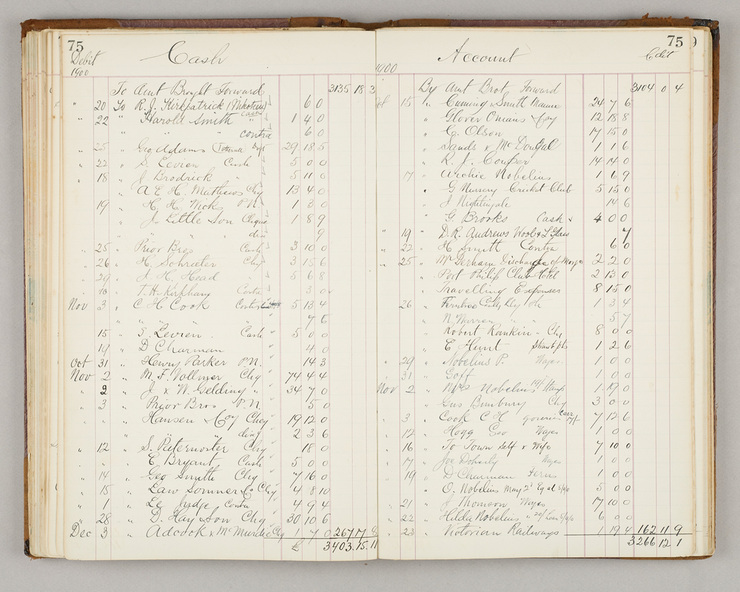 75
Debit
Cash
1900
To Amt Brought Forward 3135 18 3
" 20 To R.J. Kirkpatrick 6 0
" 22 " Harold Smith 1 4 0
" " contra 6 0
" 25 " Geo Adams 29 18 5
" 22 " S. Levien Cash 5 0 0
" 18 " J Brodrick " 5 11 0
" A. E. H. Mathews Chq 13 4 0
" 19 " H. H. P.N. 1 3 0
" J. Little Son Cheque 1 8 9
" " dis 9
" 25 " Prior Bros Cash 3 10 0
" 26 " H. Schreiter Chq 3 15 6
" 29 " J H Head 6 8
" T. H. Contra 3 0
Nov 3 " C H Cook Contra 5 13 4
" "
" 15 " S. Levien Cash 5 0 0
" 14 " D Charman 4 0
Oct 31 " Henry Parker P.N. 14 3
Nov 2 " M. F. Vollmer Chq 74 4 4
" 2 " J. & W. Gelding " 34 7 0
" 3 " Prior Bros P.N. 5 0
" Hansen & Coy Cheq 19 12 0
" " dis 2 3 6
" 12 " S. Paternoster Chq 18 0
" E Bryant Cash 5 0 0
" 14 " Geo Smith Chq 7 16 0
" 15 " Law Somner & Co Chq 4 8 10
" 1 " Le Contra 4 9 4
" 28 " D. Hay & Son Chq 30 10 6
Dec 3 " Adcock & Mc Murdie Chq 1 7 0 267 17
£ 3403 15 11
75
Account
Credit
1900
By Amt Brot Forward 3104 0 4
Oct 15 " Cuming Smith Manure 24 7 6
" Glover Onians & Coy 12 18 8
" C. Olson 17 15 0
" Sands & McDougall 1 1 6
" R. J. Couper 14 14 0
" 17 " Archie Nobelius 1 6 9
" G Murray Cricket Club 5 15 0
" J Nightingale 14 6
" G Brooks Cash 4 0 0
" 19 " D. R. Andrews 7
" 22 " H Smith Contra 6 0
" 25 " Discharge of 2 2 0
" Port Philip Club Hotel 2 13 0
" Travelling Expenses 8 15 0
" 26 " 1 3 4
" N. 5 7
" Robert Rankin - Chq 8 0 0
" E Hunt 1 2 6
" 29 " Nobelius P. Wages 1 0 0
" 31 " Goff " 1 0 0
Nov 2 " Mrs Nobelius 1 19 0
" Gus Bunbury Chq 3 0 0
" Cook C H 7 12 6
" 12 " Hogg Geo Wages 1 0 0
" 16 " To Town Self & Wife 7 10 0
" 17 " Joe Doherty Wages 1 0 0
" 19 " D Charman Ferns 1 0 0
" C. Nobelius 5 0 0
" 21 " J Thomson Wages 17 10 0
" 22 " Hilda Nobelius 6 0 0
" 23 " Victorian Railways 1 19 4 162 11 9
3266 12 1